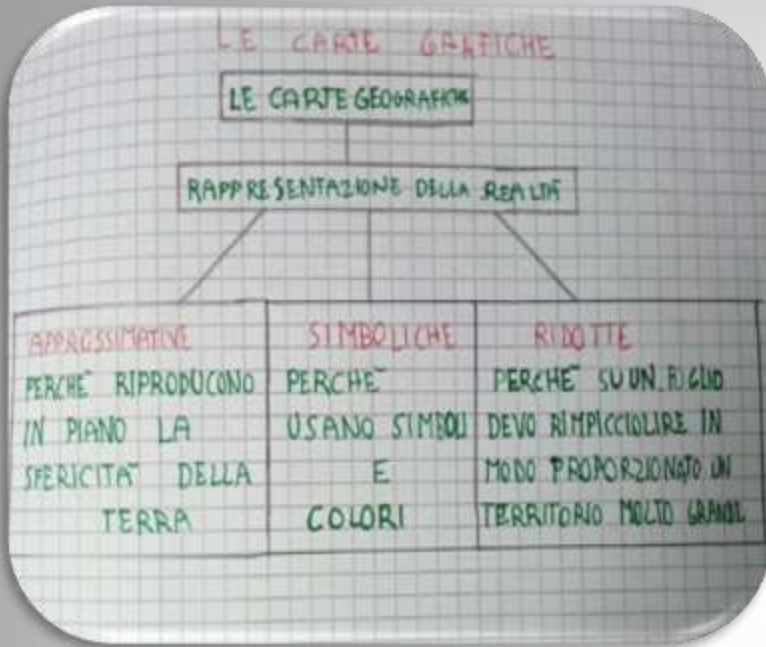 LE CARTE GRAFICHE
LE CARTE GEOGRAFICHE
RAPPRESENTAZIONE DELLA REALTÀ
APPROSSIMATIVE
PERCHÈ RIPRODUCONO
IN PIANO LA
SFERICITÀ DELLA
TERRA
SIMBOLICHE
PERCHÈ
USANO SIMBOLI
E
COLORI
RIDOTTE
PERCHÈ SU UN FOGLIO
DEVO RIMPICCIOLIRE IN
MODO PROPORZIONATO UN
TERRITORIO MOLTO GRANDE